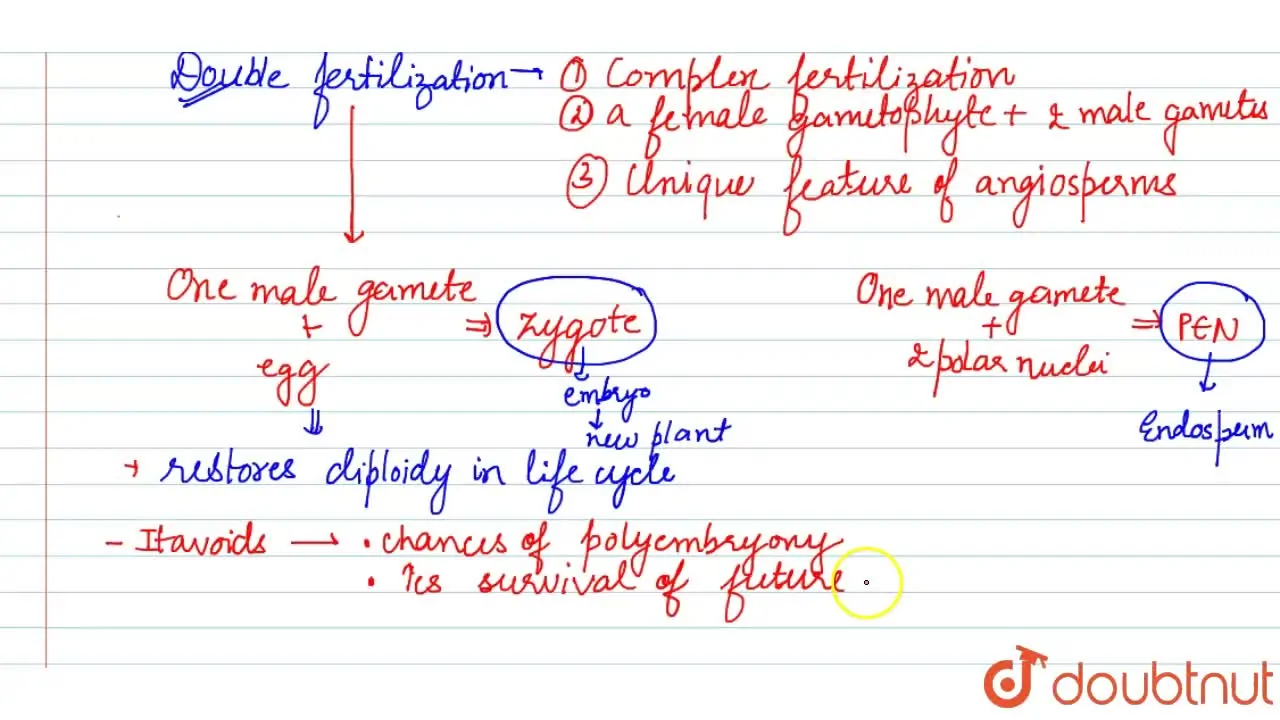 Double fertilization → ① Complex fertilization
② a female gametophyte + 2 male gametes
③ Unique feature of angiosperms
One male gamete
+
egg
⇒ Zygote
↓
embryo
↓
new plant
One male gamete
+
2 polar nuclei
⇒ PEN
↓
Endosperm
⇓
→ restores diploidy in life cycle
- It avoids → • chances of polyembryony
• ↑es survival of future
doubtnut